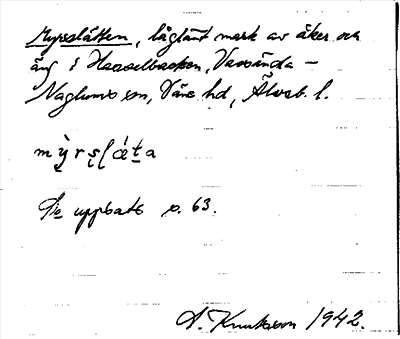 Myrslätten, låglänt mark av åker och
äng i Hasselbacken, Vassända –
Naglums sn, Väne hd, Älvsb. l.
mỳrşļǽţa
Se uppsats s. 63.
A. Knutsson 1942.